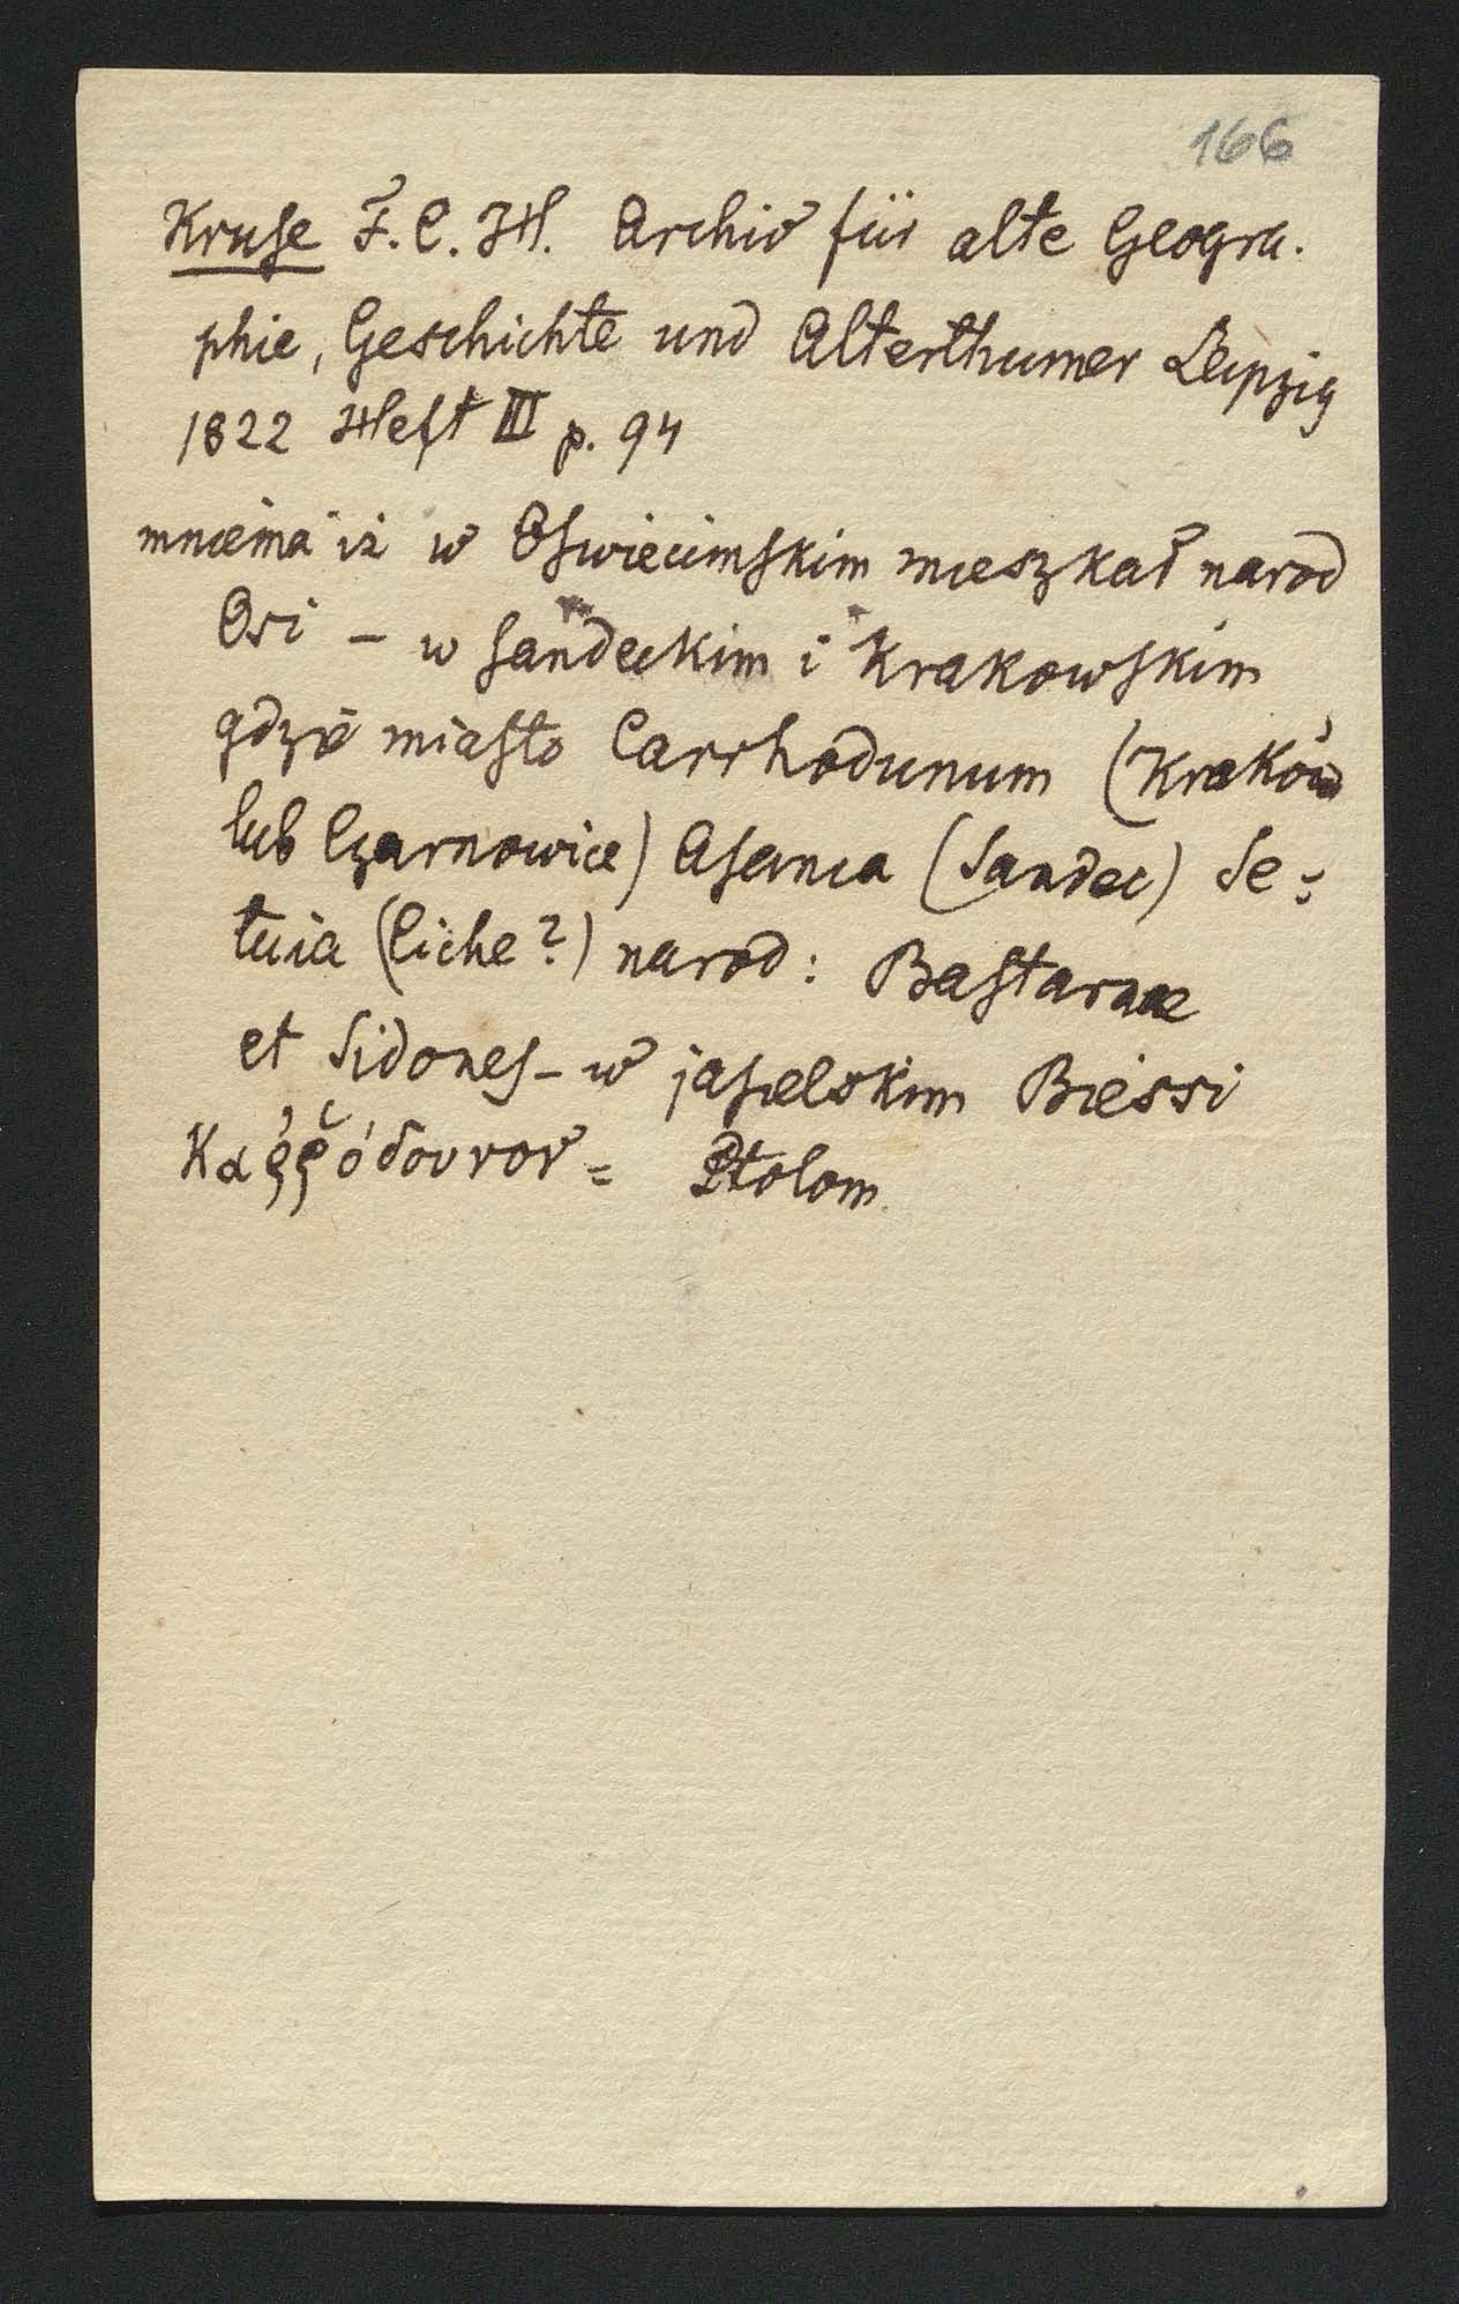 166
Kruse F. C. H. Archiv für alte Geogra.
phie, Geschichte und Alterthumer Leipzig
1822 Heft III p. 94
mniema iż w Oswiecimskim mieszkał narod
Osi – w sandeckim i Krakowskim
gdzie miasto Carrhodunum (Kraków
lub Czarnowice) Asanca (Sandec) Se:
tuia (Ciche?) narod: Bastarnae
et Sidones – w jasielskim Biessi
Καῤῥόδουνον = Ptolom.